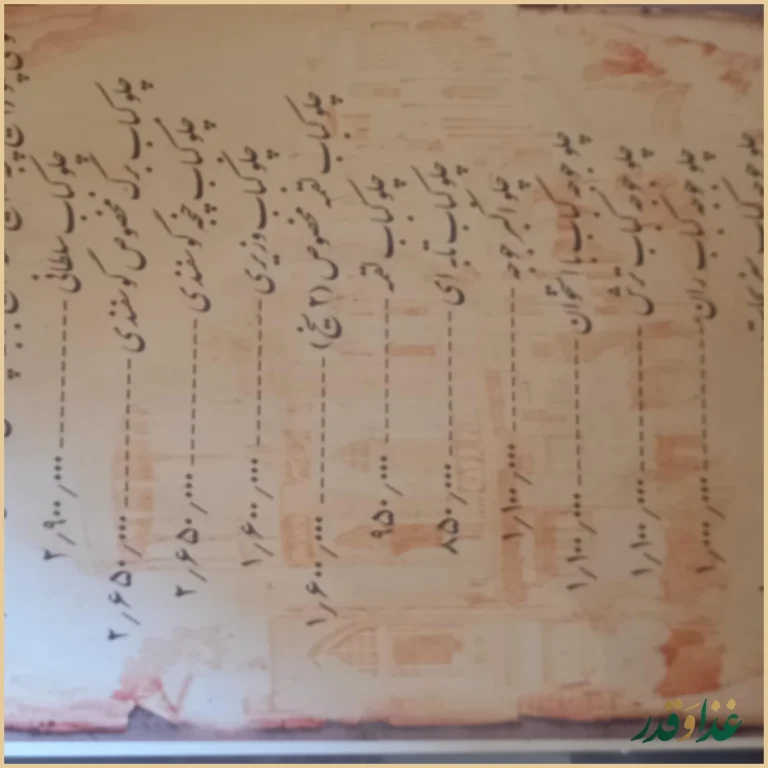 چلوکباب سلطانی -------------- ۲٫۹۰۰٫۰۰۰
چلوکباب برگ مخصوص گوسفندی -------------- ۲٫۶۵۰٫۰۰۰
چلوکباب چنجه گوسفندی -------------- ۲٫۶۵۰٫۰۰۰
چلوکباب وزیری -------------- ۱٫۶۰۰٫۰۰۰
چلوکباب لقمه مخصوص (۲ سیخ) -------------- ۱٫۶۰۰٫۰۰۰
چلوکباب لقمه -------------- ۹۵۰٫۰۰۰
چلوکباب تابه ای -------------- ۸۵۰٫۰۰۰
چلو اکبر جوجه -------------- ۱٫۱۰۰٫۰۰۰
چلو جوجه کباب با استخوان -------------- ۱٫۱۰۰٫۰۰۰
چلو جوجه کباب ترش -------------- ۱٫۱۰۰٫۰۰۰
چلو جوجه کباب ران -------------- ۱٫۰۰۰٫۰۰۰
چلو جوجه کباب
غذا و قدر